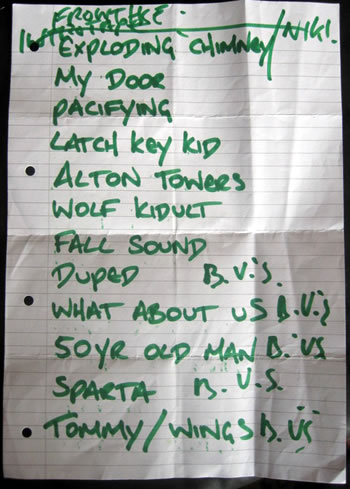 /NIKI.
EXPLODING CHIMNEY
MY DOOR
PACIFYING
LATCH KEY KID
ALTON TOWERS
WOLF KIDULT
FALL SOUND
DUPED B.V.'S.
WHAT ABOUT US B.V.'S
50 YR OLD MAN B.VS
SPARTA B.V.S.
TOMMY/WINGS B.VS